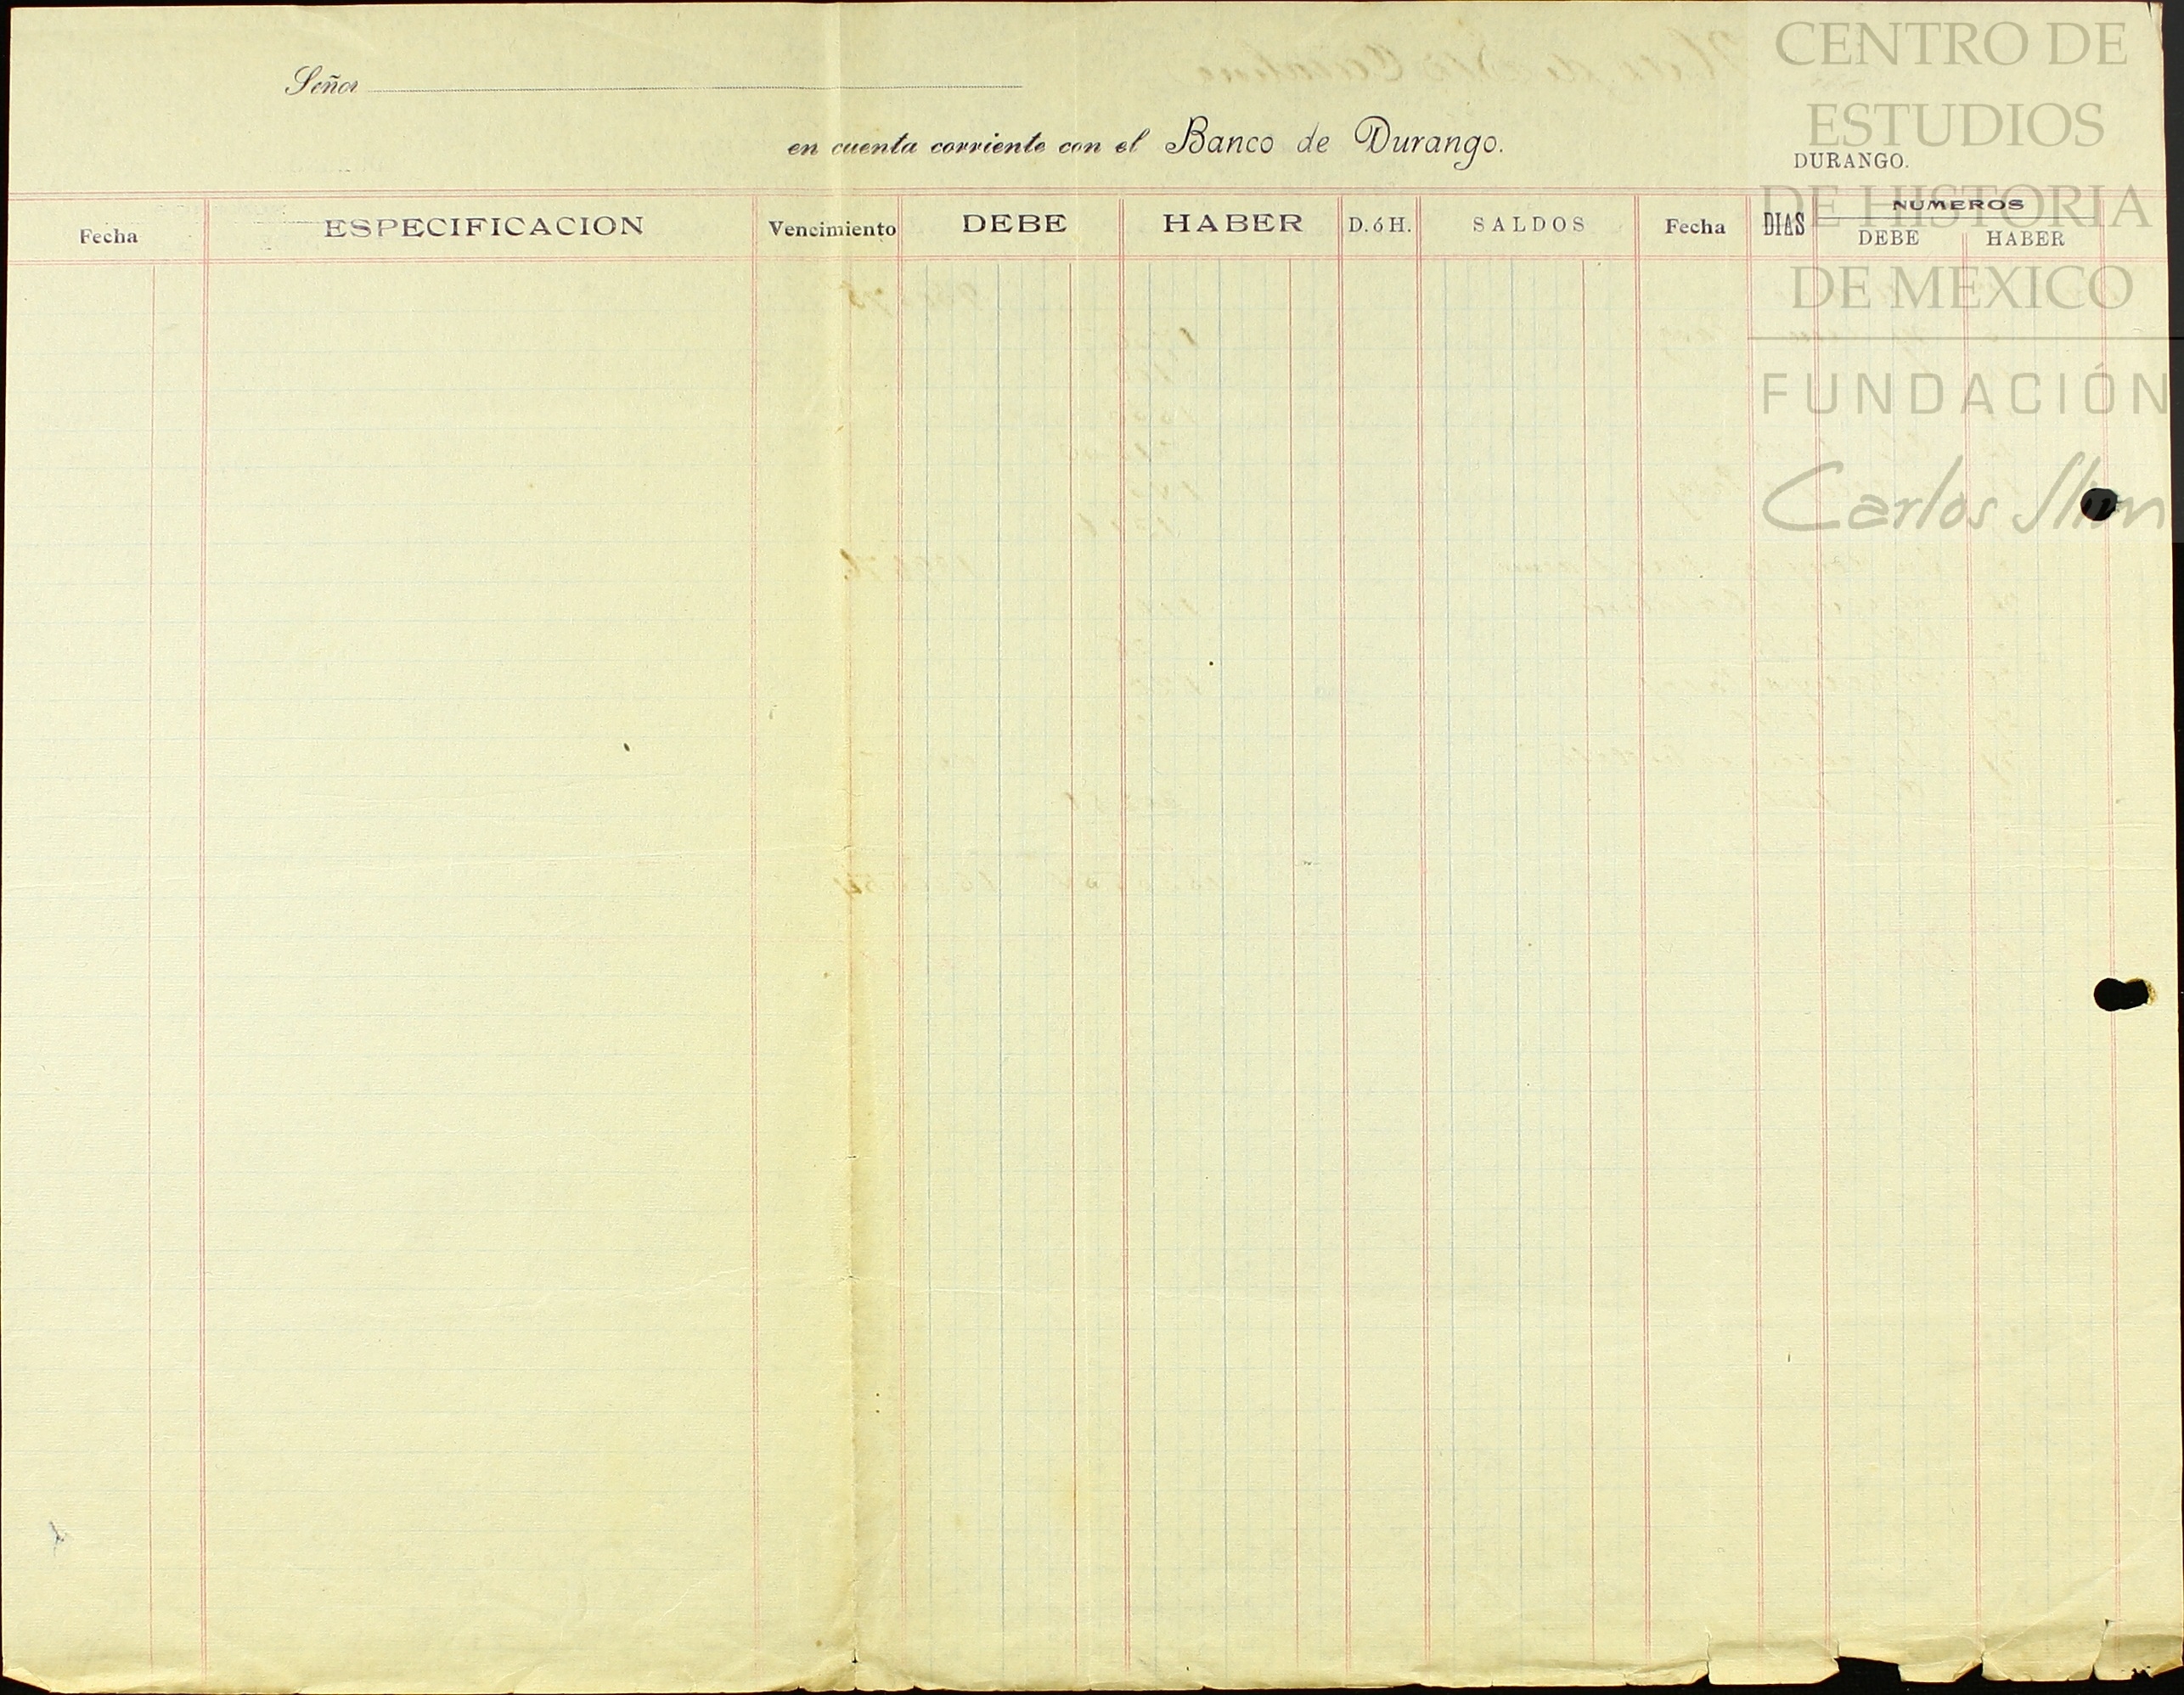 CENTRO DE
Señor
ESTUDIOS
en cuenta corriente con el Banco de Durango.
DURANGO.
DE HISTORIA
Fecha ESPECIFICACION Vencimiento DEBE HABER D. ó H. SALDOS Fecha DIAS NUMEROS
DEBE HABER
DE MEXICO
FUNDACIÓN
Carlos Slim